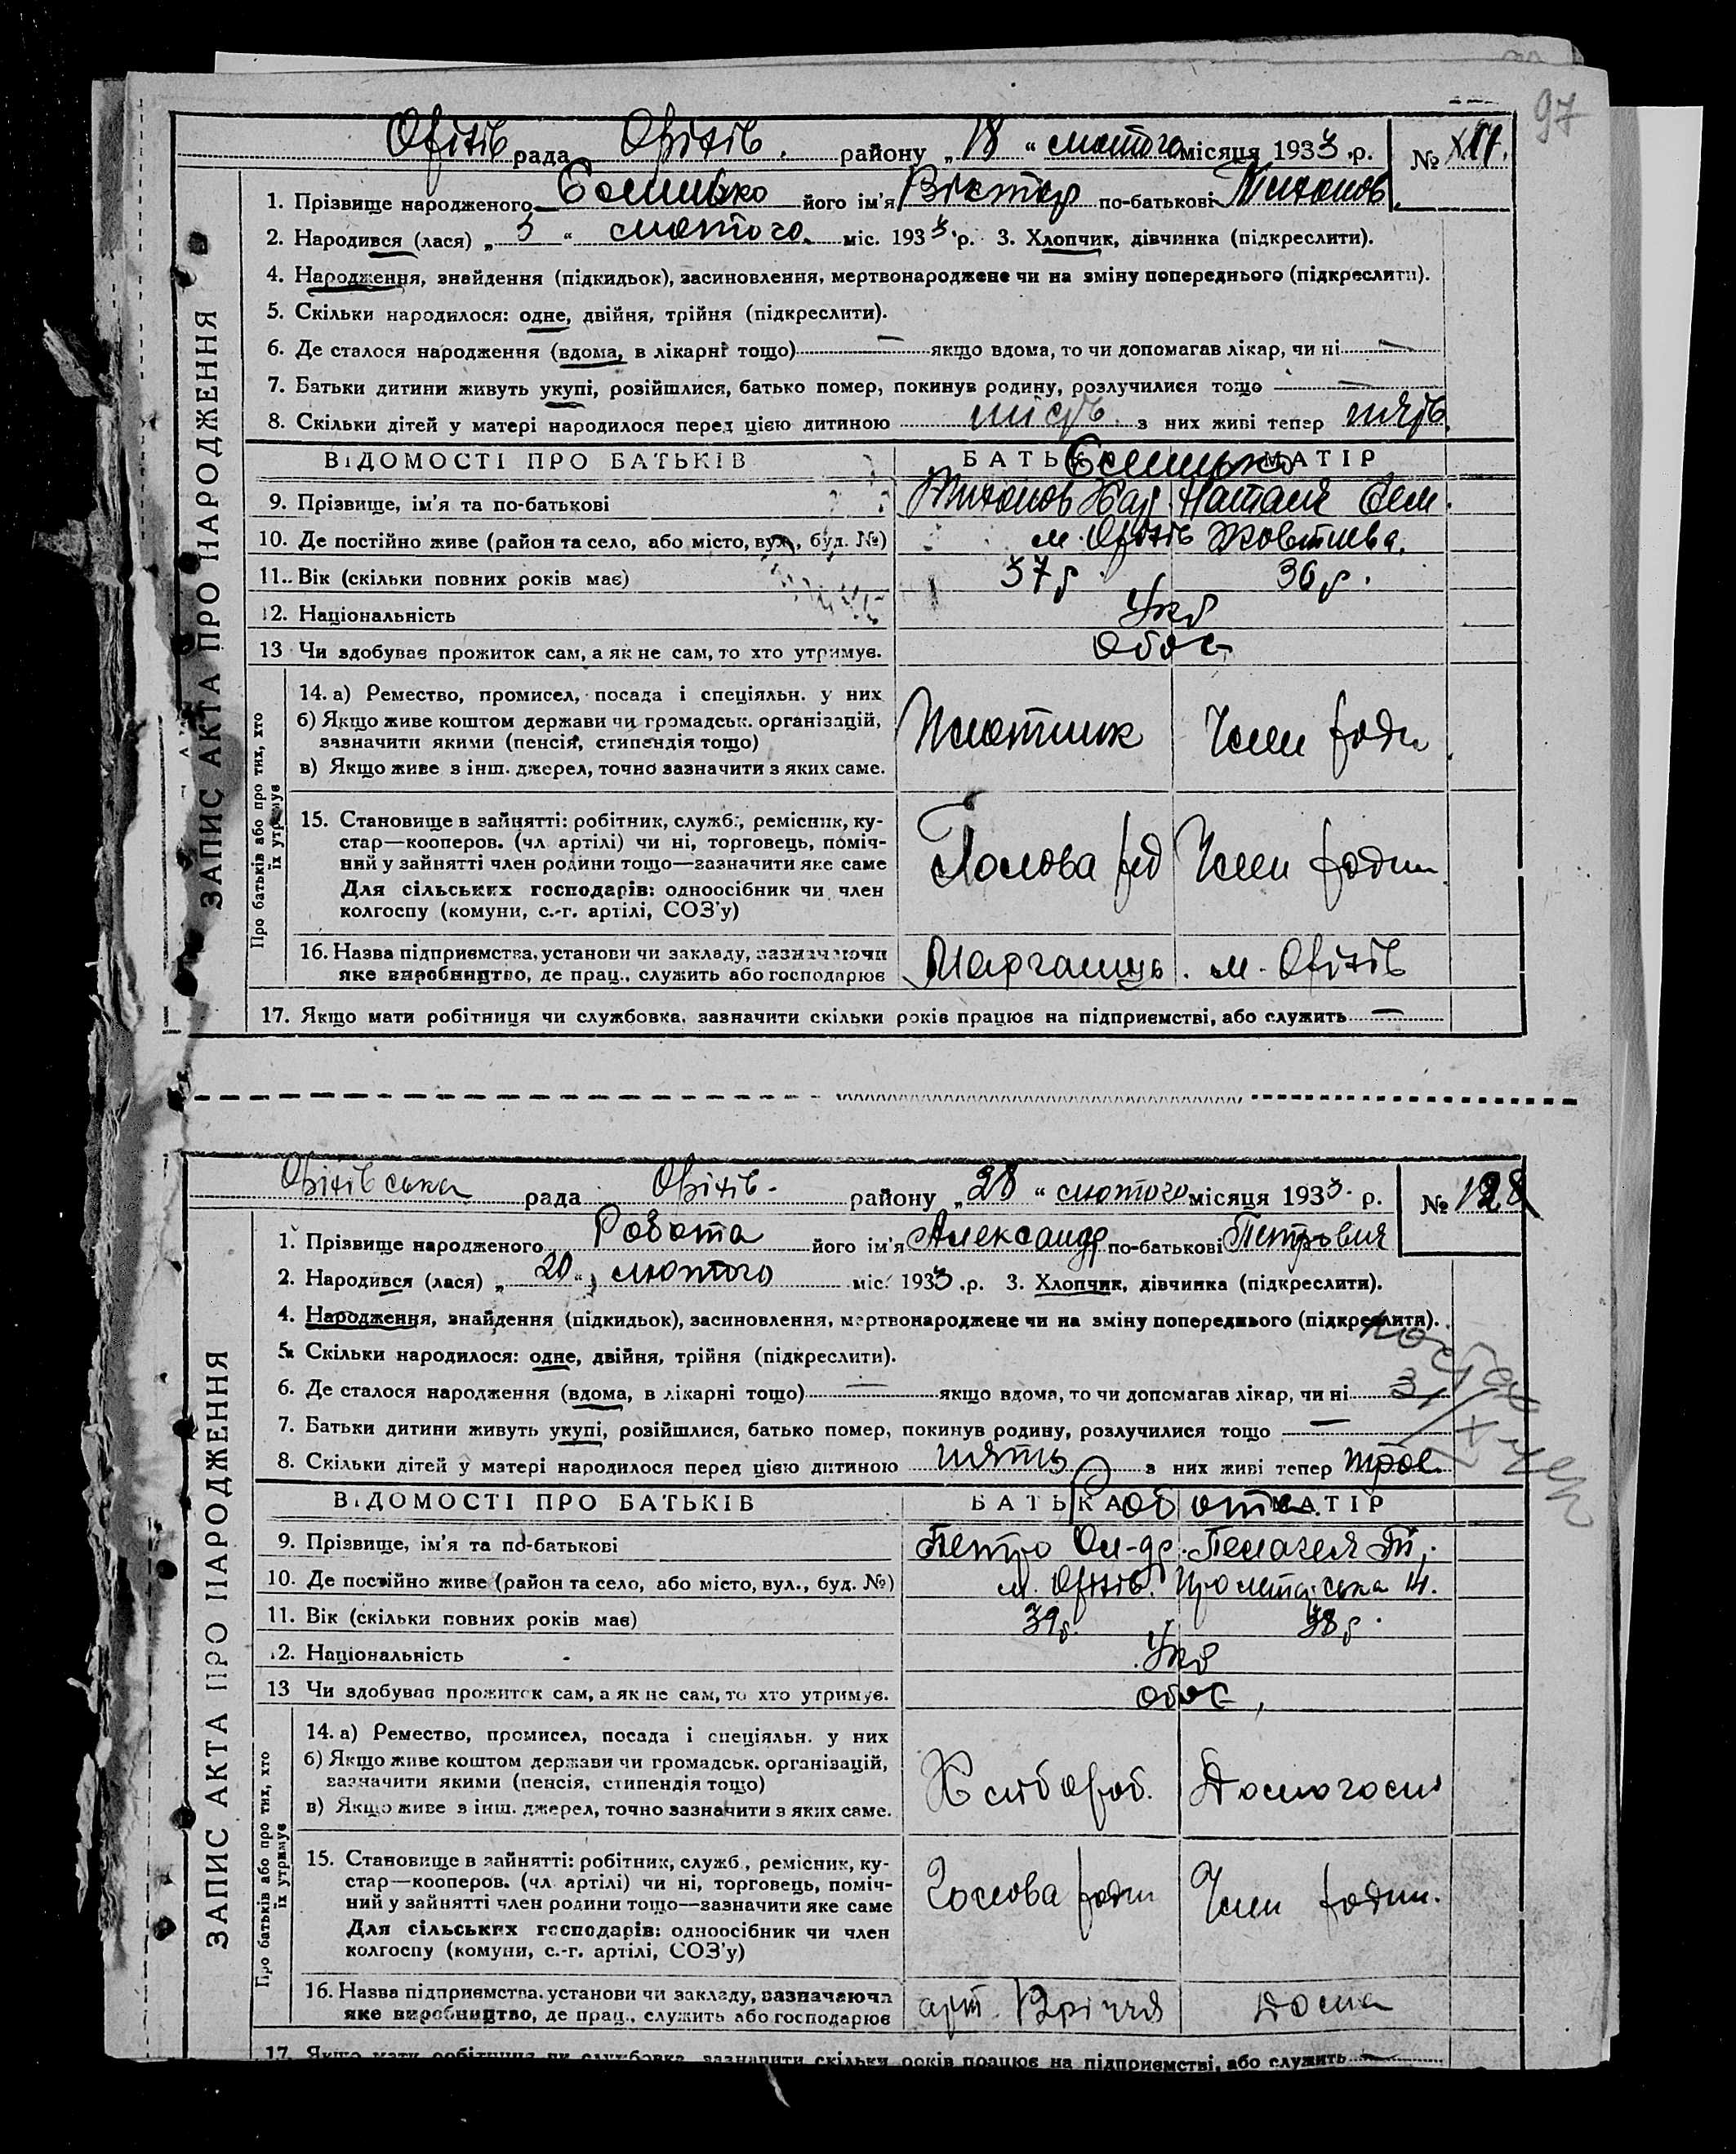 97
Оріхів рада Оріхів. району „18“ лютого місяця 1933 р. №
1. Прізвище народженого Віктор його ім'я по-батькові Тихонов.
2. Народився (лася) „5“ лютого міс. 1933 р. 3. Хлопчик, дівчинка (підкреслити).
4. Народження, знайдення (підкидьок), засиновлення, мертвонароджене чи на зміну попереднього (підкреслити).
5. Скільки народилося: одне, двійня, трійня (підкреслити).
6. Де сталося народження (вдома, в лікарні тощо) — якщо вдома, то чи допомагав лікар, чи ні —
7. Батьки дитини живуть укупі, розійшлися, батько помер, покинув родину, розлучилися тощо —
8. Скільки дітей у матері народилося перед цією дитиною шість. з них живі тепер п'ять.
ВІДОМОСТІ ПРО БАТЬКІВ БАТЬКА МАТІР
9. Прізвище, ім'я та по-батькові Тихонов Хар Наталя Сем.
10. Де постійно живе (район та село, або місто, вул., буд. №) м. Оріхів Жовтнева.
11. Вік (скільки повних років має) 37 р. 36 р.
12. Національність Укр
13 Чи здобуває прожиток сам, а як не сам, то хто утримує. Обоє
ЗАПИС АКТА ПРО НАРОДЖЕННЯ
Про батьків або про тих, хто їх утримує
14. а) Ремество, промисел, посада і спеціяльн. у них
б) Якщо живе коштом держави чи громадськ. організацій, Плотник Член роди
зазначити якими (пенсія, стипендія тощо)
в) Якщо живе з інш. джерел, точно зазначити з яких саме.
15. Становище в зайнятті: робітник, служб., ремісник, ку-
стар—кооперов. (чл. артілі) чи ні, торговець, поміч-
ний у зайнятті член родини тощо—зазначити яке саме Голова род Член родин.
Для сільських господарів: одноосібник чи член
колгоспу (комуни, с.-г. артілі, СОЗ'у)
16. Назва підприємства, установи чи закладу, зазначаючи
яке виробництво, де прац., служить або господарює Марганець. м. Оріхів
17. Якщо мати робітниця чи службовка, зазначити скільки років працює на підприємстві, або служить —
Оріхівська рада Оріхів. району „28“ лютого місяця 1933 р. № 128
1. Прізвище народженого Робота його ім'я Александр по-батькові Петрович
2. Народився (лася) „20“ лютого міс. 1933 р. 3. Хлопчик, дівчинка (підкреслити).
4. Народження, знайдення (підкидьок), засиновлення, мертвонароджене чи на зміну попереднього (підкреслити).
5. Скільки народилося: одне, двійня, трійня (підкреслити).
6. Де сталося народження (вдома, в лікарні тощо) — якщо вдома, то чи допомагав лікар, чи ні
7. Батьки дитини живуть укупі, розійшлися, батько помер, покинув родину, розлучилися тощо —
8. Скільки дітей у матері народилося перед цією дитиною п'ять з них живі тепер троє.
ВІДОМОСТІ ПРО БАТЬКІВ БАТЬКА Робота МАТІР
9. Прізвище, ім'я та по-батькові Петро Ол-др. Пелагея
10. Де постійно живе (район та село, або місто, вул., буд. №) м. Оріхів.
11. Вік (скільки повних років має) 39 р. 38 р.
12. Національність Укр
13 Чи здобуває прожиток сам, а як не сам, то хто утримує. обоє,
ЗАПИС АКТА ПРО НАРОДЖЕННЯ
Про батьків або про тих, хто їх утримує
14. а) Ремество, промисел, посада і спеціяльн. у них
б) Якщо живе коштом держави чи громадськ. організацій, Хлібороб. Домогосп
зазначити якими (пенсія, стипендія тощо)
в) Якщо живе з інш. джерел, точно зазначити з яких саме.
15. Становище в зайнятті: робітник, служб., ремісник, ку-
стар—кооперов. (чл. артілі) чи ні, торговець, поміч-
ний у зайнятті член родини тощо—зазначити яке саме Голова родин Член родин.
Для сільських господарів: одноосібник чи член
колгоспу (комуни, с.-г. артілі, СОЗ'у)
16. Назва підприємства, установи чи закладу, зазначаючи
яке виробництво, де прац., служить або господарює арт. 12річчя Дома
17. Якщо мати робітниця чи службовка, зазначити скільки років працює на підприємстві, або служить —